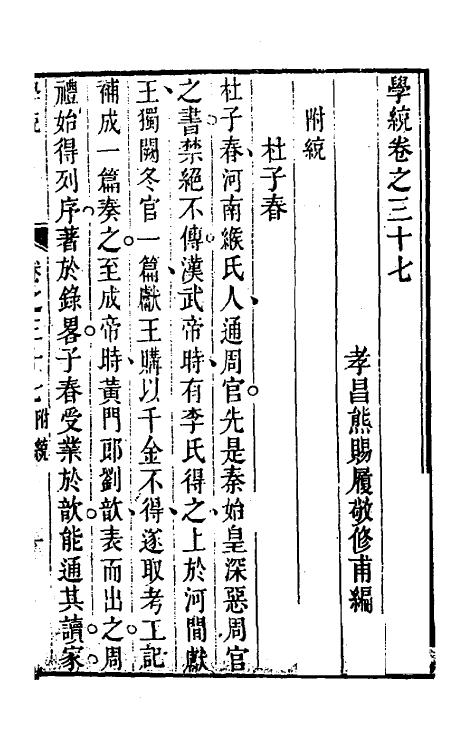 學統卷之三十七
孝昌熊賜履敬修甫編
附統
杜子春
杜子春河南緱氏人通周官先是秦始皇深惡周官
之書禁絕不傳漢武帝時有李氏得之上於河間獻
王獨闕冬官一篇獻王購以千金不得遂取考工記
補成一篇奏之至成帝時黃門郎劉歆表而出之周
禮始得列序著於錄畧子春受業於歆能通其讀家
學統 卷之三十七 附統 一